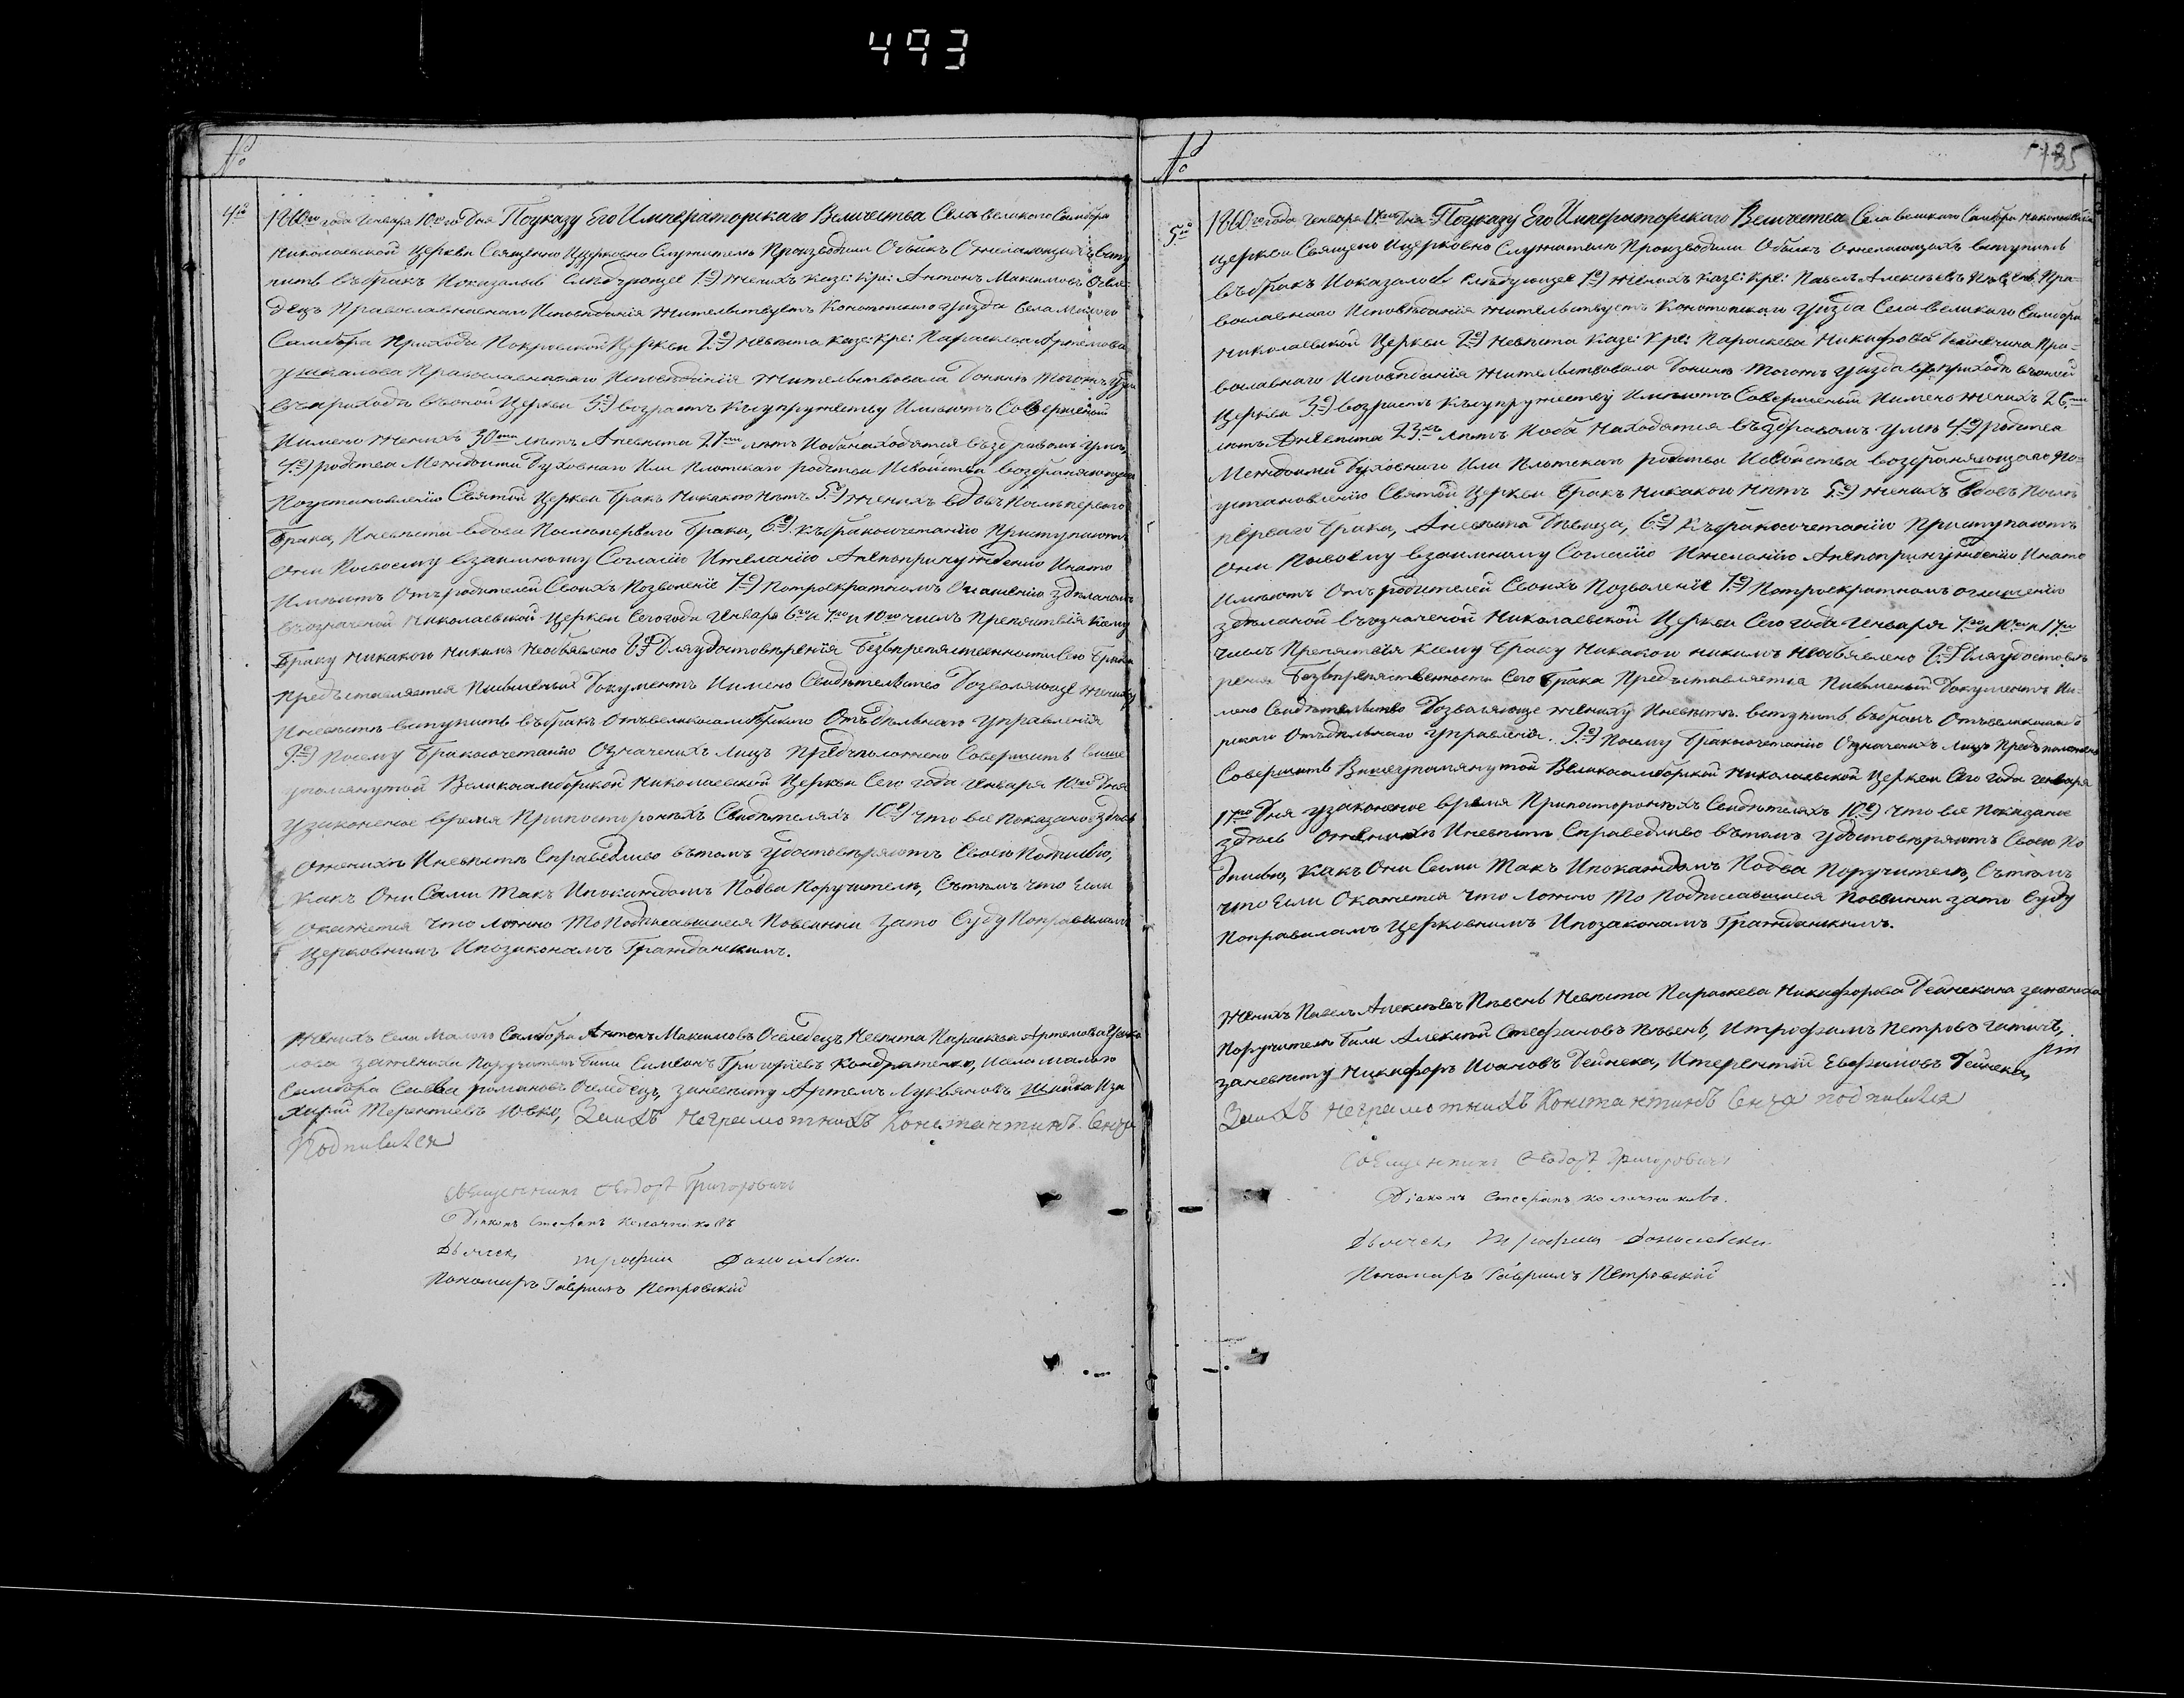 493
№
4й
1860го года Генваря 10го дня Поуказу Его Императорскаго Величества Села великого Самбора
Николаевской Церкви Священно Ицерковно Служители Производили Обыск Ожелающихъ всту
пить въбракъ Ипоказалось Следующее 1е) Женихъ Казе: Кре: Антонъ Максимовъ Оселе=
децъ Православнаго Исповѣданія жительствуетъ Конотопского уизда Села Малого
Самбора Прихода Покровской Церкви 2е) Невѣста Казе: Кре: Параскева Артемова
Православнаго Исповѣданія Жительствовала Донинѣ тогожъ уизда
въприходѣ въоной Церкви 3е) возрастъ Ксупружеству Имѣютъ Совершеный
Иимено Женихъ 30ти лѣтъ Аневѣста 27ми лѣтъ Иоба находятся въздравомъ умѣ
4е) родства Междоими Духовнаго Или Плотскаго родства Исвойства возбраняющаго
Поустановленію Святой Церкви Бракъ Никакого Нѣтъ 5е) Женихъ вдовъ Послѣпервого
Брака, Иневѣста вдова Послѣпервого Брака, 6е) Къбракосочетанію Приступаютъ
Они Посвоему взаимному Согласію Ижеланію Анепопринуждению Инато
Имѣютъ Отъродителей Своихъ Позволеніе 7е) Потроекратномъ Оглашенію здѣланомъ
въозначеной Николаевской Церкви Сегогода Генваря 6го и 7го и 10го числъ Препятствія Ксему
Браку Никакого Никимъ Необъявлено 8е) Дляудостовѣренія Безъпрепятственностисего Брака
Предъставляется Писменый Документъ Иимено Свидѣтельство Дозволяюще Жениху
Иневѣстѣ вступить въбракъ Отъвеликосамборского Отъдѣльнаго Управленія
9е) Посему Бракосочетанію Означеныхъ лицъ Предъположено Совершить више
упомянутой Великосамборской Николаевской Церкви Сего года Генваря 10го Дня
узаконеное время Припостороныхъ Свидѣтеляхъ 10е) что все показаное здѣсь
Оженихѣ Иневѣстѣ Справедливо вътомъ удостовѣряютъ Своею Подписью,
Какъ Они Сами такъ Ипокаждомъ Подва Поручителѣ, Стѣмъ что Если
Окажется что ложно То Подписавшиеся Повинни зато Суду Поправиламъ
Церковнимъ Ипозаконамъ Гражданскимъ.
Женихъ Села Малого Самбора Антонъ Максимовъ Оселедецъ Невѣста Параскева Артемова
зажениха Поручители били Симеонъ Григоріевъ Кондратенко, Исела малого
Самбора Савва романовъ Оселедецъ, заневѣсту Артемъ Лукьяновъ Иза
харій Терентіевъ Ювко, Заихъ неграмотнихъ Константинъ Сенча
Подписался
Священникъ Ѳеодоръ Григоровичъ
Діаконъ Стефанъ
Дьячекъ Трофим
Пономаръ Гавріилъ Петровскій
№
135
5й
1860го года Генваря 17го дня Поуказу Его Императорскаго Величества Села великого Самбора Николаевской
Церкви Священо Ицерковно Служители Производили Обыск Ожелающихъ вступить
въбракъ Ипоказалось слѣдующее 1е) Женихъ Казе: Кре: Павелъ Алексѣевъ Пѣвень Пра=
вославнаго Исповѣданія жительствуетъ Конотопского уизда Села Великого Самбора
Николаевской Церкви 2е) Невѣста Казе: Кре: Параскева Никифорова Дейнекина Пра=
вославнаго Исповѣданія жительствовала Донинѣ тогожъ уизда въприходѣ въоной
Церкви 3е) возрастъ Ксупружеству Имѣютъ Совершеный Иимено Женихъ 26ти
лѣтъ Аневѣста 23хъ лѣтъ Иоба находятся въздравомъ умѣ 4е) родства
Междоими Духовного Или Плотского родства Исвойства возбраняющаго По=
установленію Святой Церкви Бракъ Никакого Нѣтъ 5е) Женихъ вдовъ Послѣ
первого Брака, Аневѣста Дѣвица, 6е) Къбракосочетанію Приступаютъ
Они Посвоему взаимному Согласію Ижеланію Анепопринуждению Инато
Имѣютъ Отъ родителей Своихъ Позволеніе 7е) Потроекратномъ оглашенію
здѣланой въозначеной Николаевской Церкви Сего года Генваря 7го и 10го и 17го
числъ Препятствія Ксему Браку Никакого никимъ Необъявлено 8е) Дляудостовѣ
ренія Безъпрепятственности Сего Брака Предъставляется Писменый Документъ Ии=
мено Свидѣтельство Дозволяюще Жениху Иневѣстѣ вступить въбракъ Отъвеликосамбо
рскаго Отъдѣльнаго управленія. 9е) Посему Бракосочетанію Означеныхъ лицъ Предъположено
Совершить Вишеупомянутой Великосамборской Николаевской Церкви Сего года генваря
17го Дня узаконеное время Припостороныхъ Свидѣтеляхъ 10е) что все Показаное
здѣсь Оженихѣ Иневѣстѣ Справедливо вътомъ удостовѣряютъ Своею По
дписью, Какъ Они Сами такъ Ипокаждомъ Подва Поручителѣ, Сътѣмъ
что Если Окажется что ложно То Подписавшиеся Повинни зато Суду
Поправиламъ Церковнимъ Ипозаконамъ Гражданскимъ.
Женихъ Павелъ Алексѣевъ Пѣвень Невѣста Параскева Никифорова Дейнекина зажениха
Поручители били Алексѣй Стефановъ Пѣвень, Итрофимъ Петровъ
заневѣсту Никифоръ Ивановъ Дейнека, Итерентій Евфимовъ Дейнека,
Заихъ неграмотнихъ Константинъ Сенча подписался
Священникъ Ѳеодоръ Григоровичъ
Діаконъ Стефанъ
Дьячекъ Трофим
Пономаръ Гавріилъ Петровскій